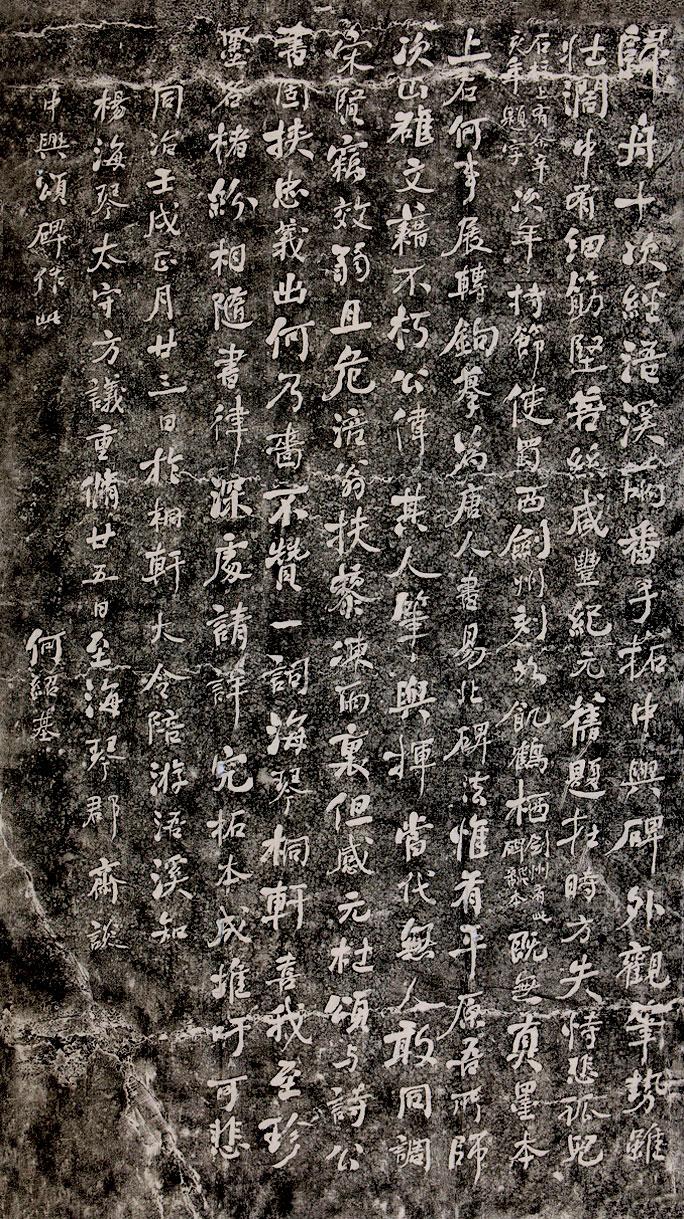 歸舟十次經浯溪兩番手拓中興碑外觀筆勢雖
壯闊中有細筋堅若絲咸豐紀元舊題在時方失恃悲孤兒
石柱上有余辛亥年題字次年持節使蜀西劍州刻如飢鶴栖劍州有此碑翻本既無真墨本
上石何事展轉鉤摹為唐人書易北碑法惟有平原吾所師
次山雄文藉不朽公偉其人肇與揮當代無人敢同調
宋賢竊效弱且危涪翁扶藜凍雨裏但感元杜頌与詩公
書固挾忠義出何乃嗇不贊一詞海琴桐軒喜我至珍
墨名楮紛相隨書律深處請詳究拓本成堆吁可悲
同治壬戌正月廿三日於桐軒大令陪游浯溪知
楊海琴太守方議重脩廿五日至海琴郡齋談
中興頌碑作此 何紹基